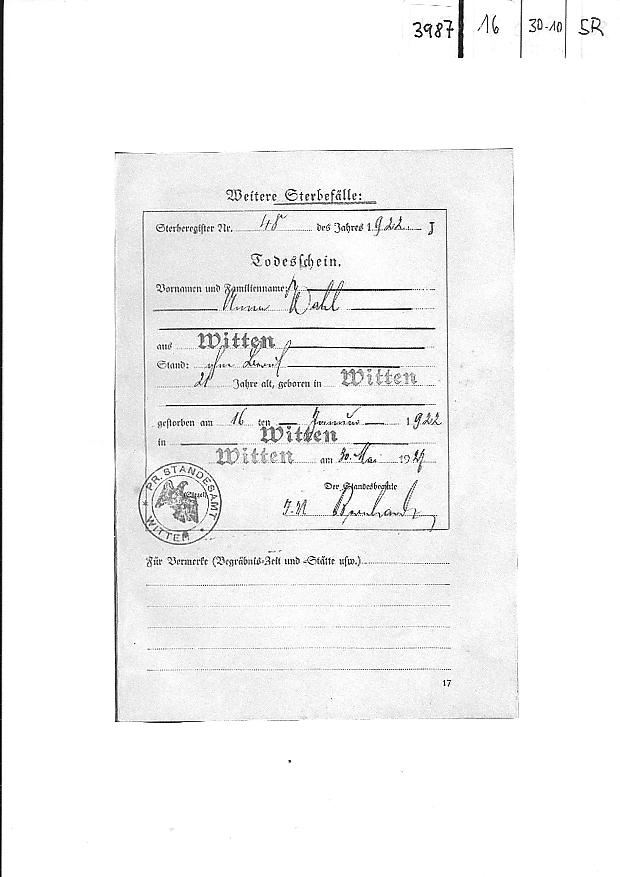 3987 16 30-10 SR
Weitere Sterbefälle:
Sterberegister Nr. 48 des Jahres 1922 J
Todesschein.
Vornamen und Familienname:
Anna Wahl
aus Witten
Stand: ohne Beruf
21 Jahre alt, geboren in Witten
gestorben am 16 ten Januar 1922
in Witten
Witten am 30. Mai 1927
Der Standesbeamte
(Siegel)
I.V. Bernhardt
PR. STANDESAMT
WITTEN
Für Vermerke (Begräbnis-Zeit und -Stätte usw.)
17